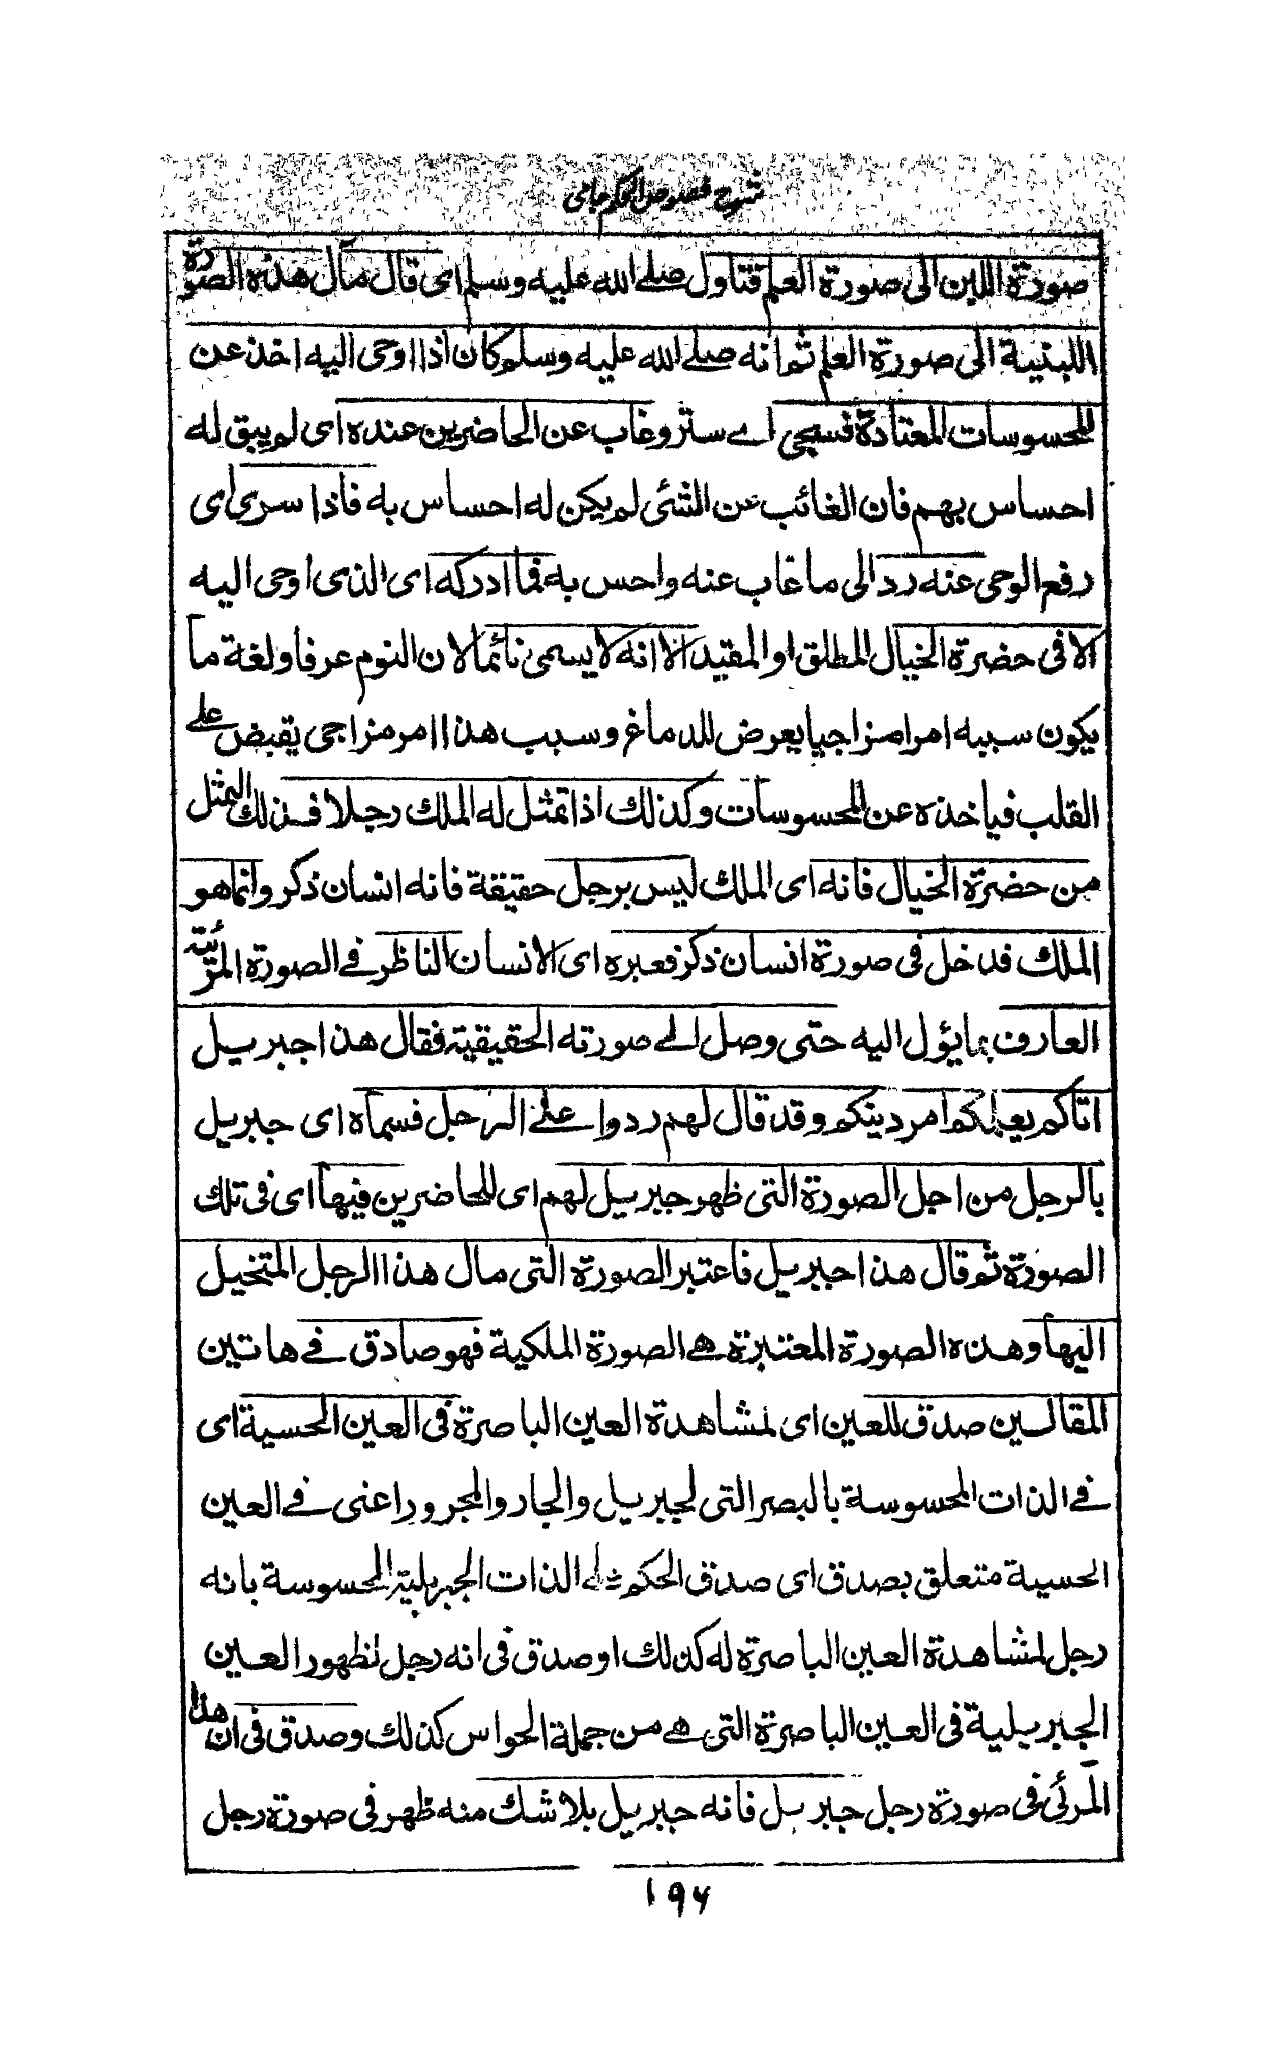 شرح فصوص الحكم جامى
صورة اللبن الى صورة العلم فتاول صلے الله عليه وسلم اى قال مآل هذه الصورة
اللبنية الى صورة العلم ثم انه صلے الله عليه وسلم كان اذا اوحى اليه اخذ عن
المحسوسات المعتادة فسجى اے ستر وغاب عن الحاضرين عنده اى لم يبق له
احساس بهم فان الغائب عن الشئ لم يكن له احساس به فاذا سرى اى
رفع الوحى عنه رد الى ما غاب عنه واحس به فما ادركه اى الذى اوحى اليه
الا فى حضرة الخيال المطلق او المقيد الا انه لا يسمى نائما لان النوم عرفا ولغة ما
يكون سببه امرا مزاجيا يعرض للدماغ وسبب هذا امر مزاجى يقبض علے
القلب فيأخذه عن المحسوسات وكذلك اذا تمثل له الملك رجلا فذلك التمثل
من حضرة الخيال فانه اى الملك ليس برجل حقيقة فانه انسان ذكر وانما هو
الملك فدخل فى صورة انسان ذكر فعبره اى الانسان الناظر فے الصورة المرئية
العارف بما يؤل اليه حتى وصل الے صورته الحقيقية فقال هذا جبريل
اتاكم يعلمكم امر دينكم وقد قال لهم ردوا علے الرجل فسماه اى جبريل
بالرجل من اجل الصورة التى ظهر جبريل لهم اى للحاضرين فيها اى فى تلك
الصورة ثم قال هذا جبريل فاعتبر الصورة التى مال هذا الرجل المتخيل
اليها وهذه الصورة المعتبرة هے الصورة الملكية فهو صادق فے هاتين
المقالتين صدق للعين اى لمشاهدة العين الباصرة فى العين الحسية اى
فے الذات المحسوسة بالبصر التى لجبريل والجار والمجرور اعنى فے العين
الحسية متعلق بصدق اى صدق الحكم الذات الجبريلية المحسوسة بانه
رجل لمشاهدة العين الباصرة له كذلك او صدق فى انه رجل لظهور العين
الجبريلية فى العين الباصرة التى هے من جملة الحواس كذلك وصدق فى ان هذا
المرئى فى صورة رجل جبريل فانه جبريل بلا شك منه ظهر فى صورة رجل
۱۹۶